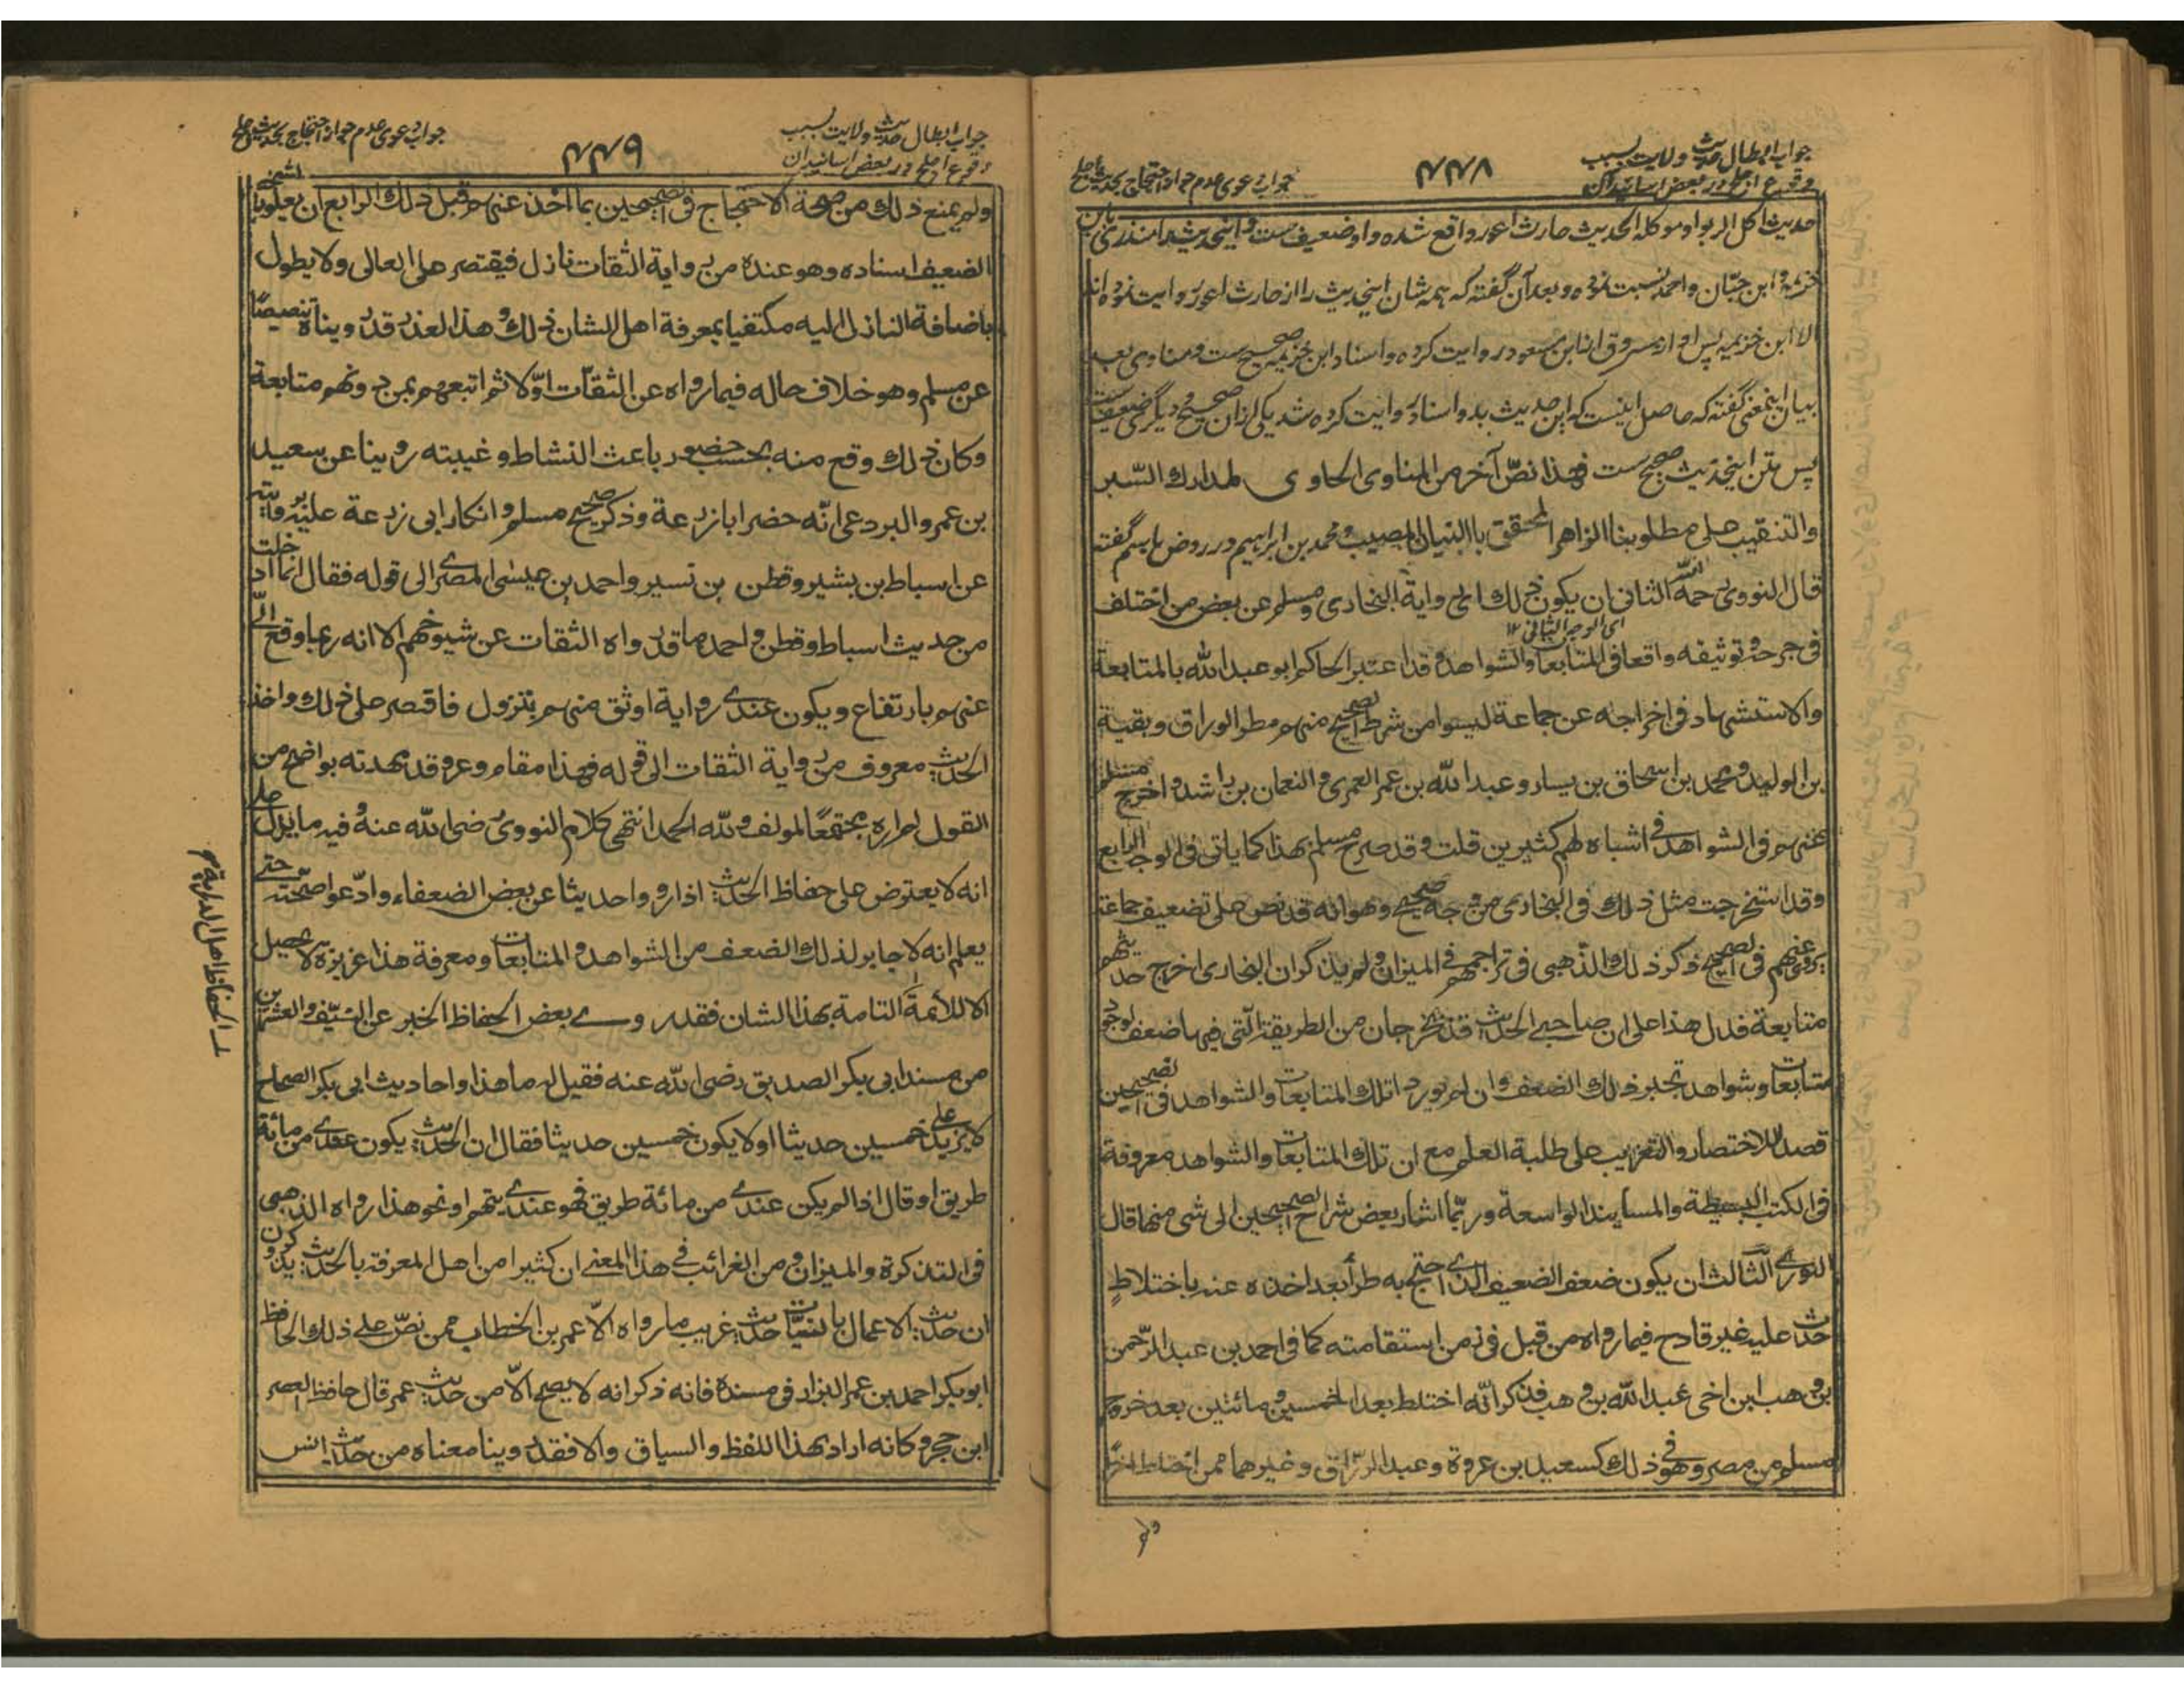 جواب ابطال حدیث ولایت بسبب
وقوع اجلح در بعض اسانید آن
۴۴۸
جواب دعوی عدم جواز احتجاج بحدیث اجلح
حدیث اکل الربوا وموکله الحدیث حارث اعور واقع شده واو ضعیف ست واینحدیث را منذری بابن
خزیمه وابن حبّان واحمد نسبت نموده وبعد آن گفته که همه شان اینحدیث را از حارث اعور روایت نموده اند
الا ابن خزیمه پس او از مسروق از ابن مسعود روایت کرده واسناد ابن خزیمه صحیح ست ومناوی بعد
بیان اینمعنی گفته که حاصل اینست که این حدیث بدو اسناد روایت کرده شد یکی ازان صحیح ودیگری ضعیف ست
پس متن اینحدیث صحیح ست فهذا نصّ آخر من المناوی الحاوی لمدارك السّبر
والتنقيب على مطلوبنا الزاهر المحقق بالبنيان المصيب ومحمد بن ابراهیم در روض باسم گفته
قال النووي رحمه الله الثانى ان يكون ذلك اى رواية البخارى ومسلم عن بعض من اختلف
اى الوجه الثانى ١٢
فى جرحه وتوثيقه واقعا فى المتابعات والشواهد وقد اعتبر الحاكم ابو عبد الله بالمتابعة
والاستشهاد فى اخراجه عن جماعة ليسوا من شرط الصحيح منهم مطر الوراق وبقية
بن الوليد ومحمد بن اسحاق بن يسار وعبد الله بن عمر العمرى والنعمان بن راشد واخرج مسلم
عنهم فى الشواهد فى اشباه لهم كثيرين قلت وقد صرح مسلم بهذا كما ياتى فى الوجه الرابع
وقد استخرجت مثل ذلك فى البخارى من وجه صحيح وهو انه قد نص على تضعيف جماعة
يروى عنهم فى الصحيح ذكر ذلك الذهبى فى تراجمهم فى الميزان ولم يذكر ان البخارى اخرج حديثهم
متابعة فدل هذا على ان صاحبى الحديث قد يخرجان من الطريقة التى فيها ضعف لوجود
متابعات وشواهد تجبر ذلك الضعف وان لم يوردا تلك المتابعات والشواهد فى الصحيحين
قصدا للاختصار والتقريب على طلبة العلم مع ان تلك المتابعات والشواهد معروفة
فى الكتب البسيطة والمسانيد الواسعة وربّما اشار بعض شراح الصحيحين الى شى منها قال
النووى الثالث ان يكون ضعف الضعيف الذى احتج به طرأ بعد اخذه عنه باختلاطٍ
حدث عليه غير قادح فيما رواه من قبل فى زمن استقامته كما فى احمد بن عبد الرّحمن
بن وهب ابن اخى عبد الله بن وهب فذكر انّه اختلط بعد الخمسين ومائتين بعد خروج
مسلم من مصر وهو فى ذلك كسعيد بن عروة وعبد الرّزاق وغيرهما ممن اختلط اخرًا
ولم
جواب ابطال حدیث ولایت بسبب
وقوع اجلح در بعض اسانید آن
۴۴۹
جواب دعوی عدم جواز احتجاج بحدیث اجلح
ولم يمنع ذلك من صحة الاحتجاج فى الصحيحين بما اخذ عنهم قبل ذلك الرابع ان يعلو بالشخص
الضعيف اسناده وهو عنده من رواية الثقات نازل فيقتصر على العالى ولا يطول
باضافة النازل اليه مكتفيا بمعرفة اهل الشان ذلك وهذا العذر قد رويناه تنصيصًا
عن مسلم وهو خلاف حاله فيما رواه عن الثقات اوّلا ثم اتبعهم بمن دونهم متابعة
وكان ذلك وقع منه بحسب حضور باعث النشاط وغيبته روينا عن سعيد
بن عمرو البردعى انّه حضر ابا زرعة وذكر صحيح مسلم وانكار ابى زرعة عليه روايته
عن اسباط بن بشير وقطن بن نسير واحمد بن عيسى المصرى الى قوله فقال انما ادخلت
من حديث اسباط وقطن واحمد ما قد رواه الثقات عن شيوخهم الا انه ربما وقع الىّ
عنهم بارتفاع ويكون عندى رواية اوثق منهم بنزول فاقتصر على ذلك واخذ
الحديث معروف من رواية الثقات الى قوله فهذا مقام وعر وقد مهدته بواضح من
القول لم اره مجتمعًا لمولف ولله الحمد انتهى كلام النووى رضى الله عنه وفيه ما يدل على
انه لا يعترض على حفاظ الحديث اذا رووا حديثا عن بعض الضعفاء وادّعوا صحّته حتى
يعلم انه لا جابر لذلك الضعف من الشواهد والمتابعات ومعرفة هذا عزيزة لا تحصل
الا للأئمة التامة بهذا الشان فقد روى بعض الحفاظ الخبر عن النيّف والعشرين
من مسند ابى بكر الصديق رضى الله عنه فقيل له ما هذا واحاديث ابى بكر الصحاح
لا تزيد على خمسين حديثا او لا يكون خمسين حديثا فقال ان الحديث يكون عندى من مائة
طريق او قال اذا لم يكن عندى من مائة طريق فهو عندى يتهم او نحو هذا رواه الذهبى
فى التذكرة والميزان ومن الغرائب فى هذا المعنى ان كثيرا من اهل المعرفة بالحديث يذكرون
ان حديث الاعمال بالنيّات حديث غريب ما رواه الّا عمر بن الخطاب ممن نصّ على ذلك الحافظ
ابو بكر احمد بن عمر البزار فى مسنده فانه ذكر انه لا يصح الّا من حديث عمر قال حافظ العصر
ابن حجر وكانه اراد بهذا اللفظ والسياق والا فقد روينا معناه من حديث انس
الحفاظ اهل الدراية